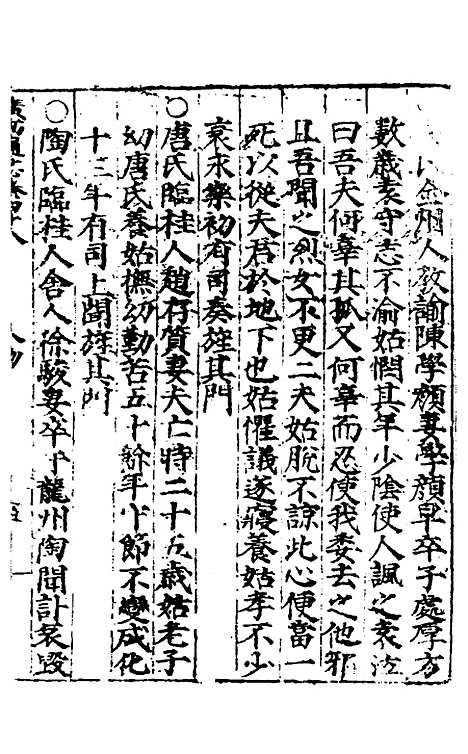 金州人教諭陳學顏妻學顏早卒子處厚方
數歲袁守志不渝姑憫其年少陰使人諷之袁泣
曰吾夫何辜其孤又何辜而忍使我委去之他邪
且吾聞之烈女不更二夫姑脫不諒此心便當一
死以從夫君於地下也姑懼議遂寢養姑孝不少
衰永樂初有司奏旌其門
○唐氏臨桂人趙存質妻夫亡特二十五歲姑老子
幼唐氏養姑撫幼勤苦五十餘年卞節不變成化
十三年有司上聞旌其門
○陶氏臨桂人舍人徐駿妻卒于龍州陶聞訃哀毀